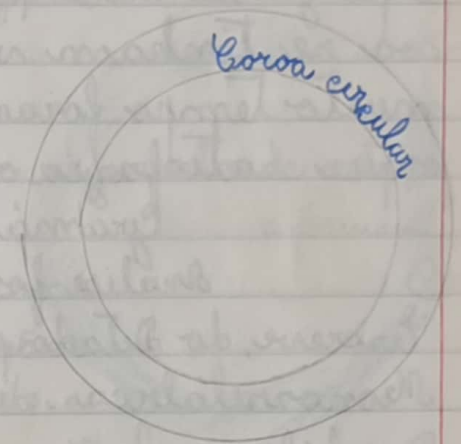 Coroa circular